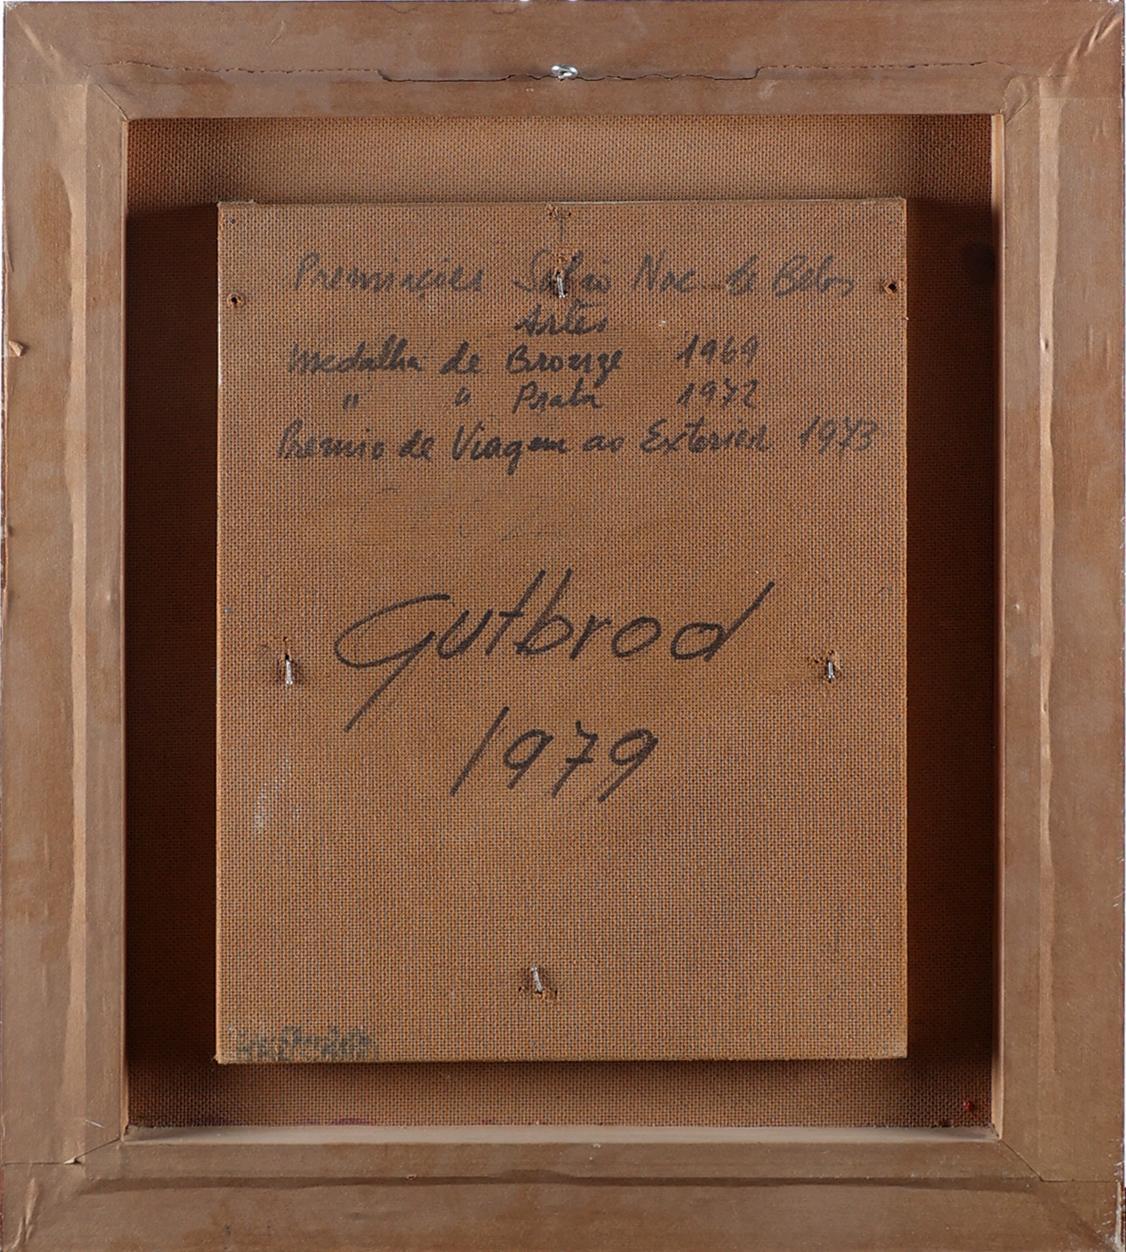 Premiações Salão Nac de Belas
Artes
Medalha de Bronze 1969
" " Prata 1972
Premio de Viagem ao Exterior 1973
Gutbrod
1979